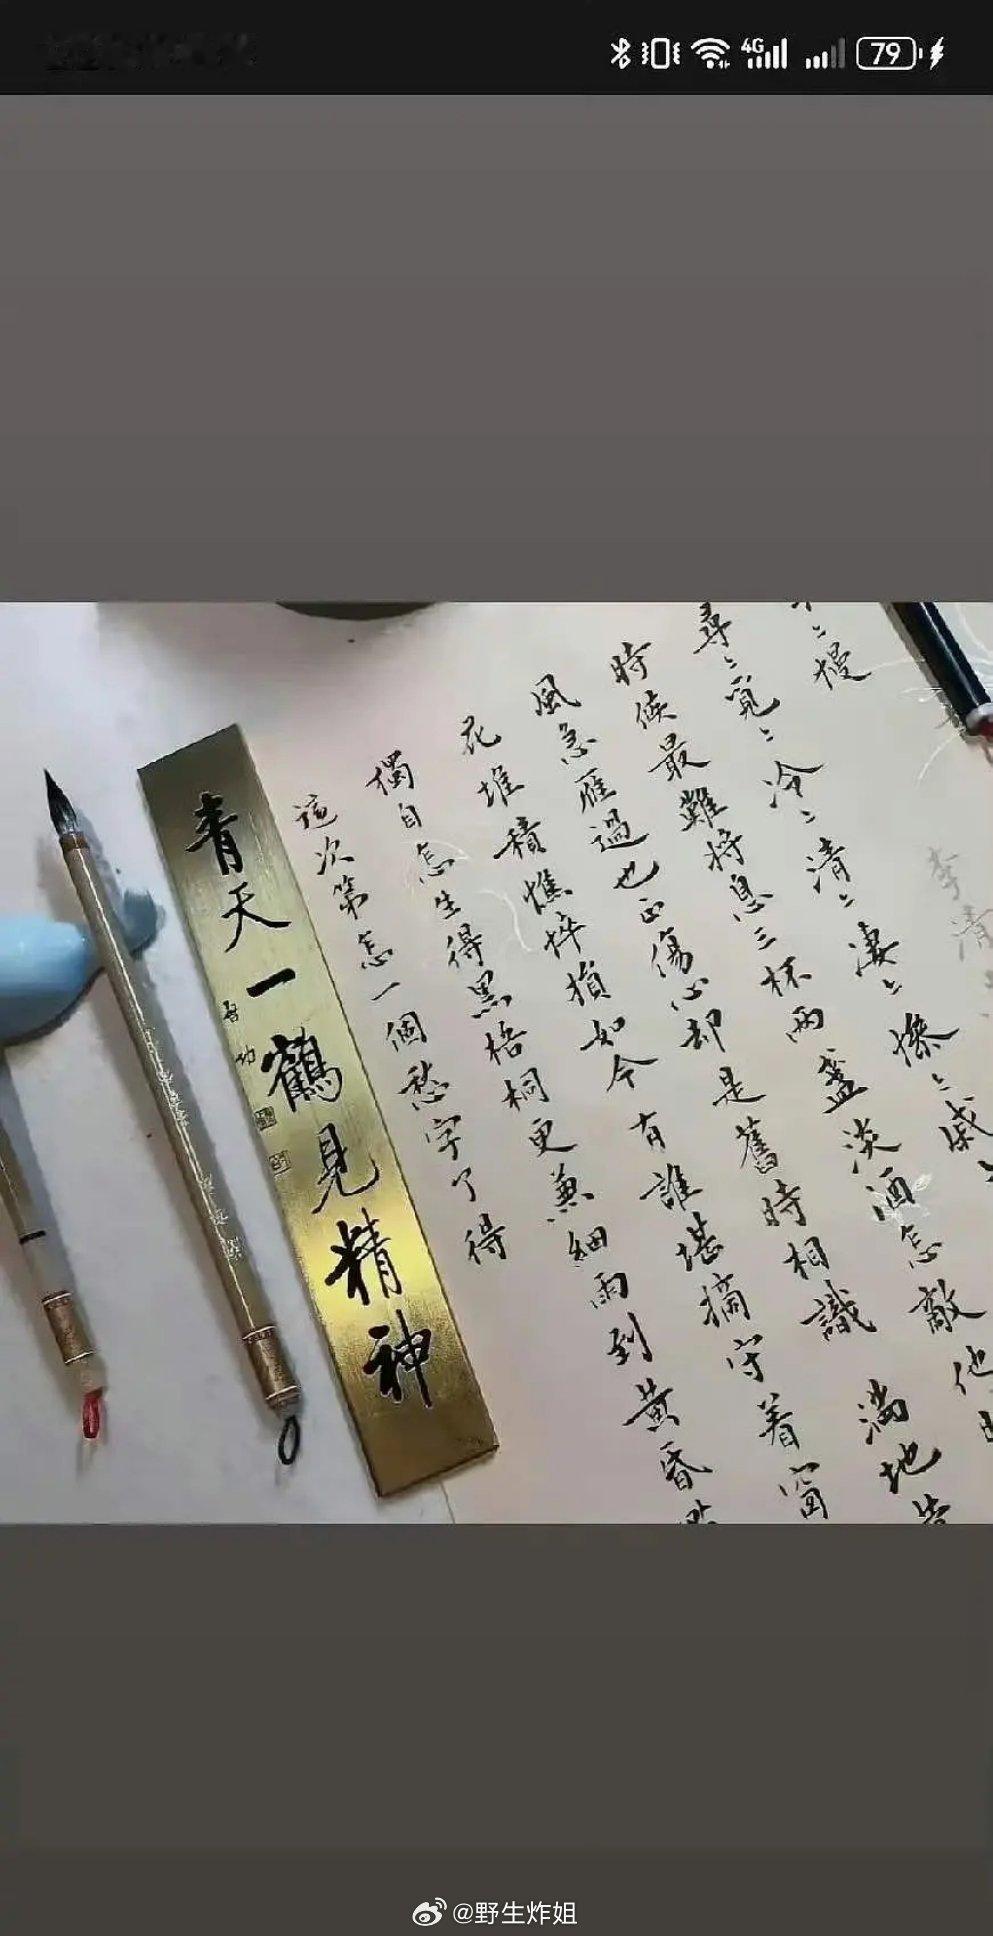 4G 79
〻慢
李清
尋〻覓〻冷〻清〻凄〻慘〻戚〻
時候最難將息三杯兩盞淡酒怎敵他
風急雁過也正傷心却是舊時相識 滿地
花堆積憔悴損如今有誰堪摘守着窗
獨自怎生得黑梧桐更兼細雨到黃昏
這次第怎一個愁字了得
青天一鶴見精神
啓功
@野生炸姐